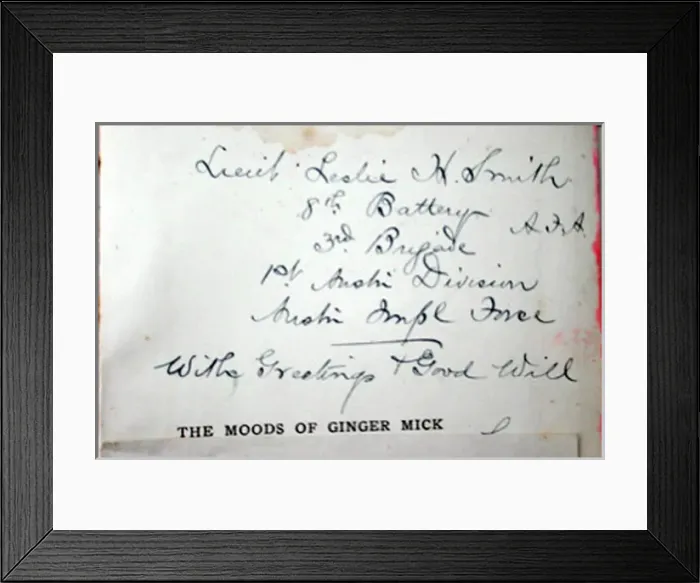 Lieut. Leslie H. Smith
8th Battery
A.F.A.
3rd Brigade
1st Austn Division
Austn Impl Force
With Greetings & Good Will
THE MOODS OF GINGER MICK